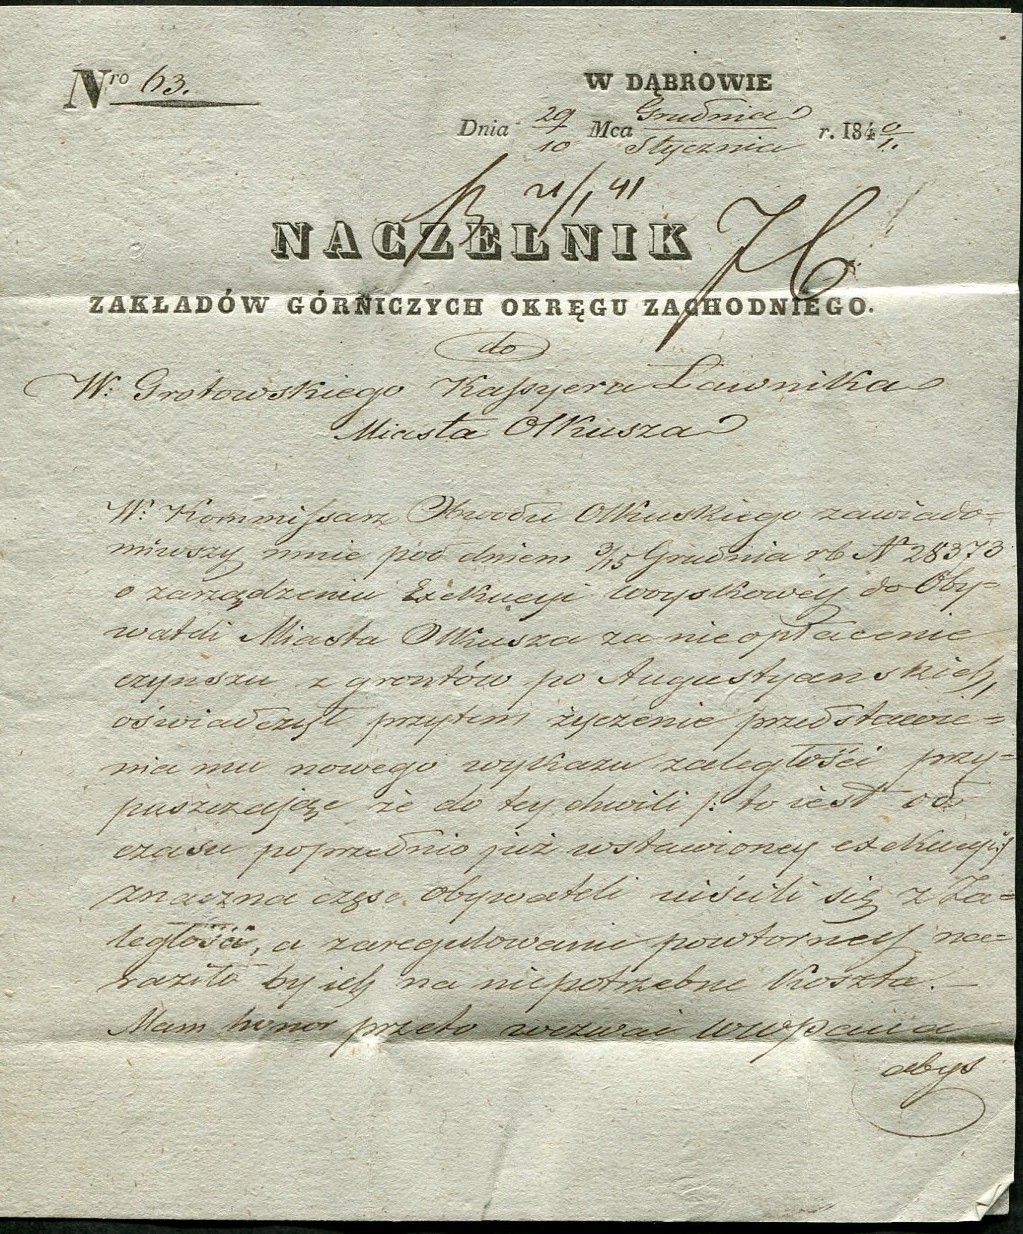 Nro 63.
W DĄBROWIE
Dnia 29/10 Mca Grudnia/Stycznia r. 1840/1.
21/1 41
NACZELNIK
ZAKŁADÓW GÓRNICZYCH OKRĘGU ZACHODNIEGO.
do
W: Grotowskiego Kassyera Ławnika
Miasta Olkusza
W: Kommissarz Obwodu Olkuskiego zawiado-
miwszy mnie pod dniem 3/15 Grudnia rb No 28373
o zarządzeniu Exekucyi woyskowéy do Oby-
wateli Miasta Olkusza za nieopłacenie
czynszu z gróntów po Augustyanskich,
oświadczył przytem życzenie przedstawie-
nia mu nowego wykazu zaległości przy-
puszczaiąc że do tey chwili /: to iest od
czasu poprzednio iuż wstawioney exekucyi :/
znaczna część obywateli uiścili się z Za-
ległości, a zaregulowanie powtorney na-
raziło by ich na niepotrzebne koszta. –
Mam honor przeto wezwać WWPana
abyś